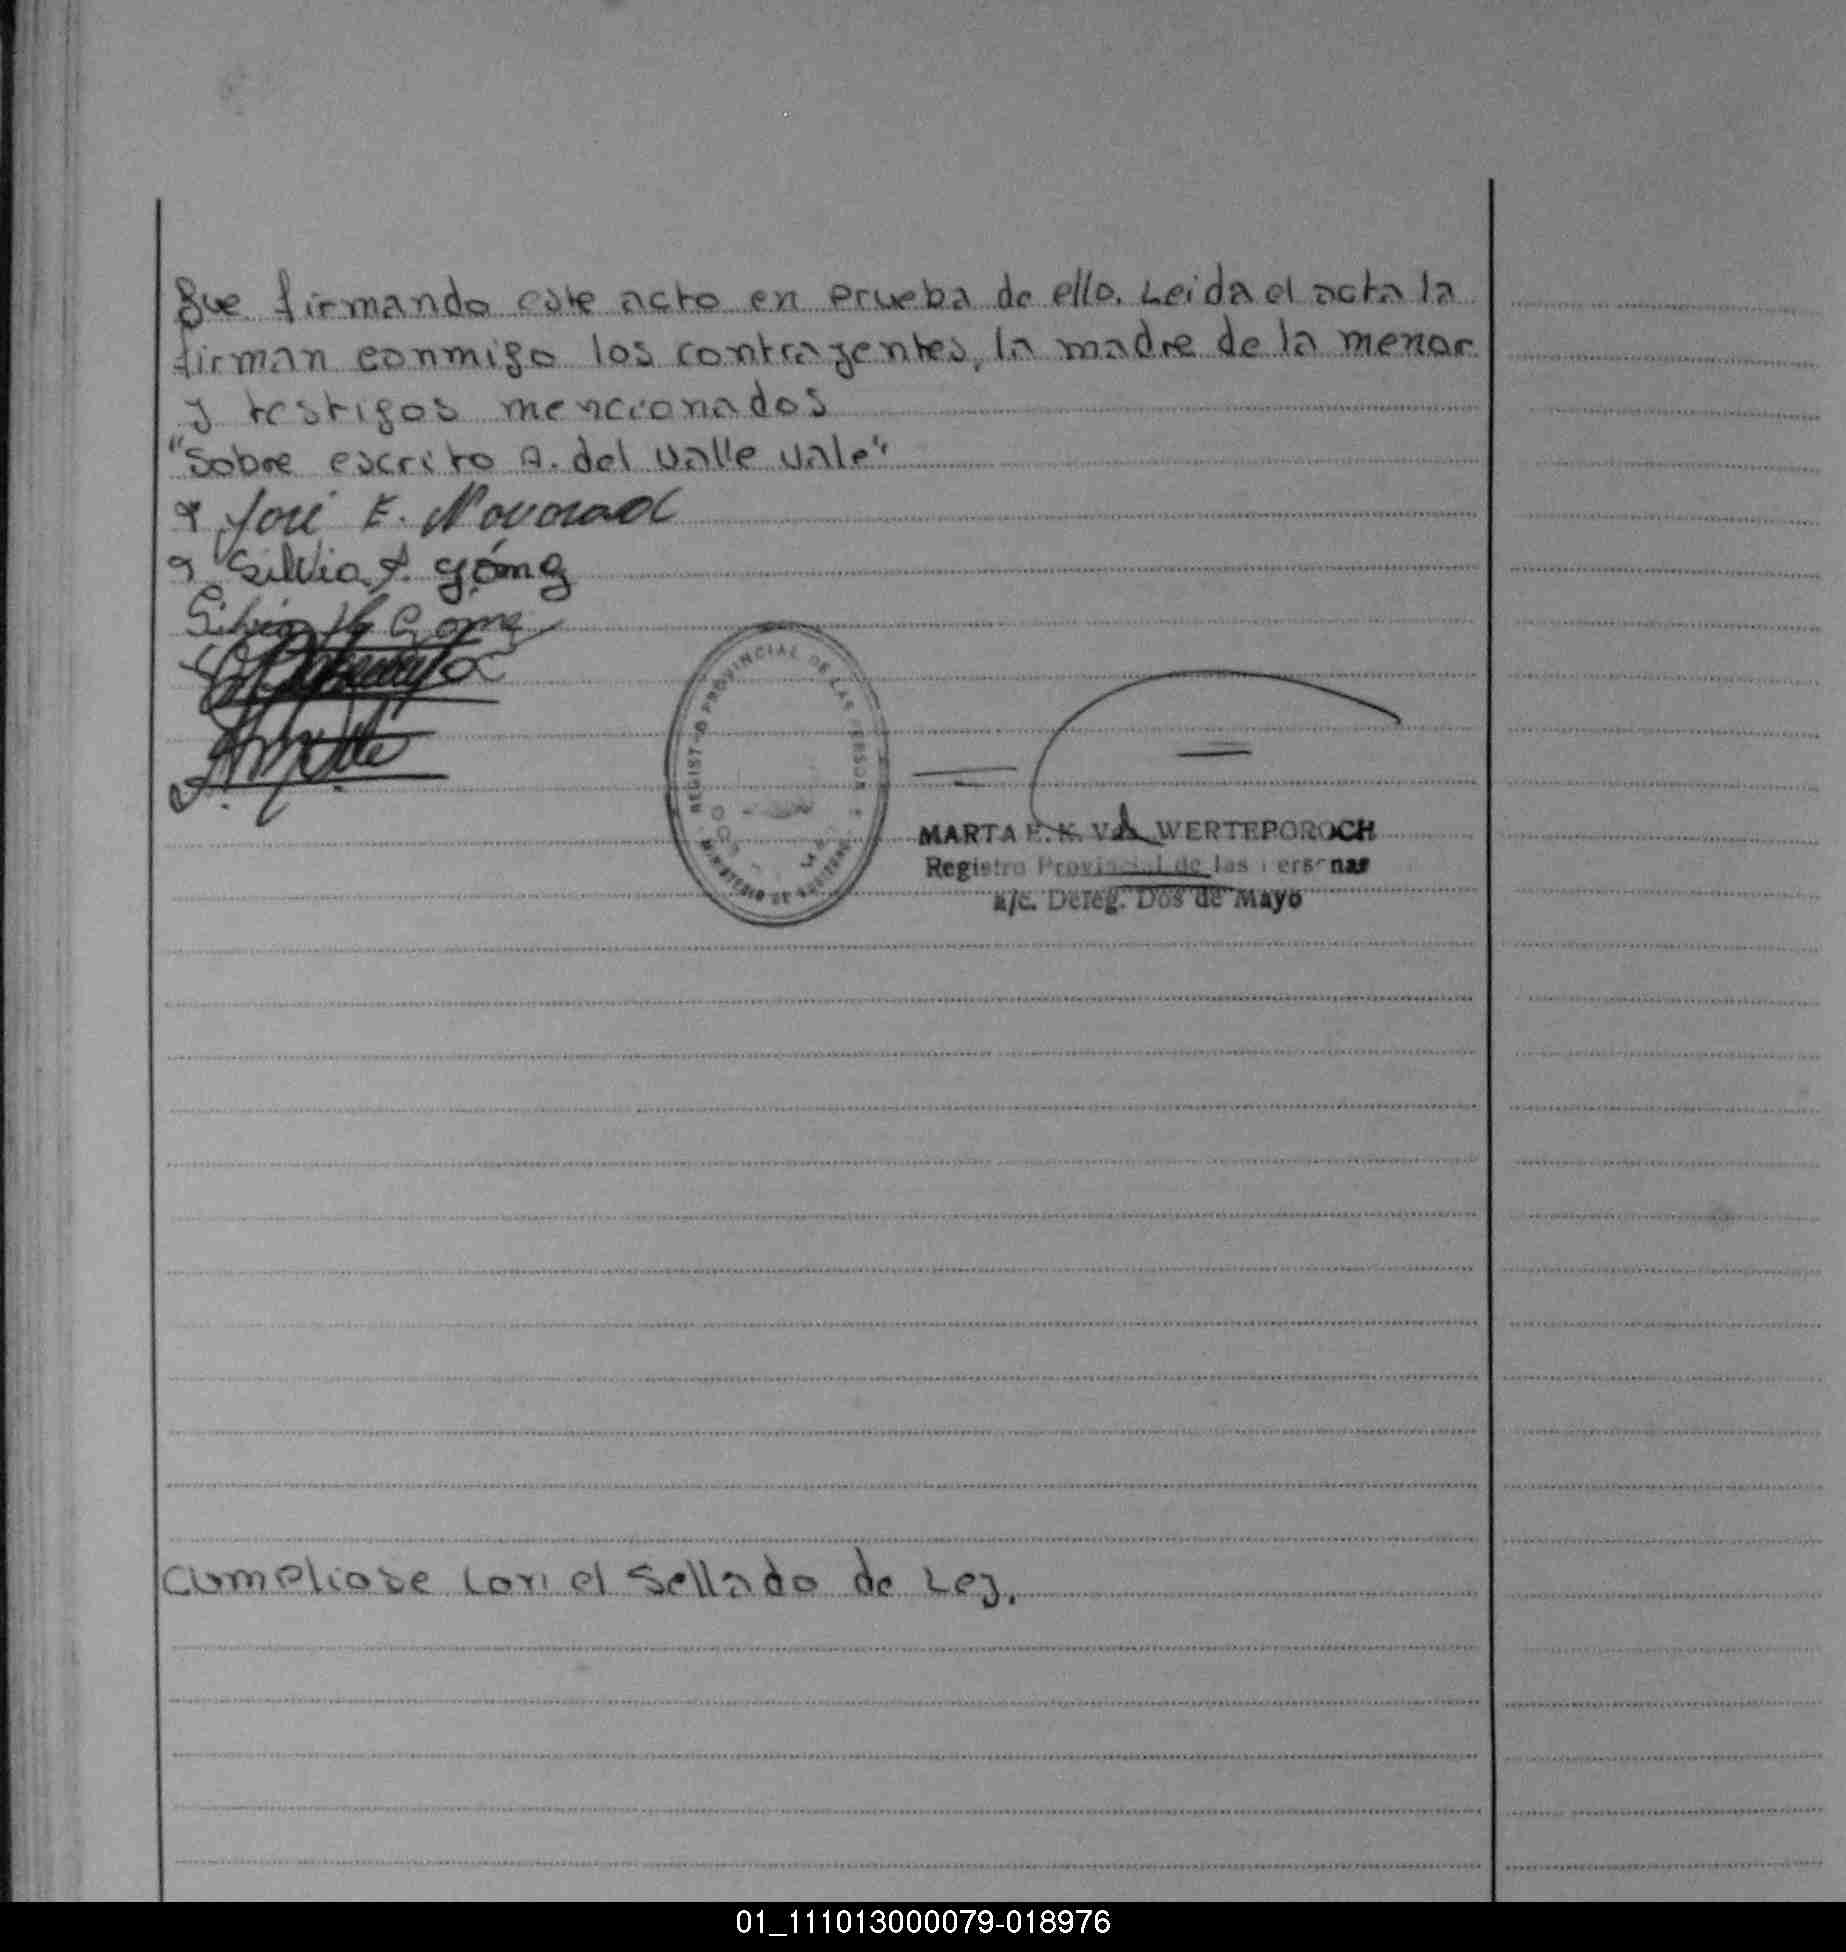 que firmando este acto en prueba de ello. Leida el acta la
firman conmigo los contrayentes, la madre de la menor
y testigos mencionados
"Sobre escrito A. del valle vale"
José E. Novorad
Silvia A. Gómez
Silvia Gomez
REGISTRO PROVINCIAL DE LAS PERSONAS
MARTA E. K. VDA WERTEPOROCH
Registro Provincial de las Personas
a/c. Deleg. Dos de Mayo
Cumpliose con el Sellado de Ley.
01_111013000079-018976